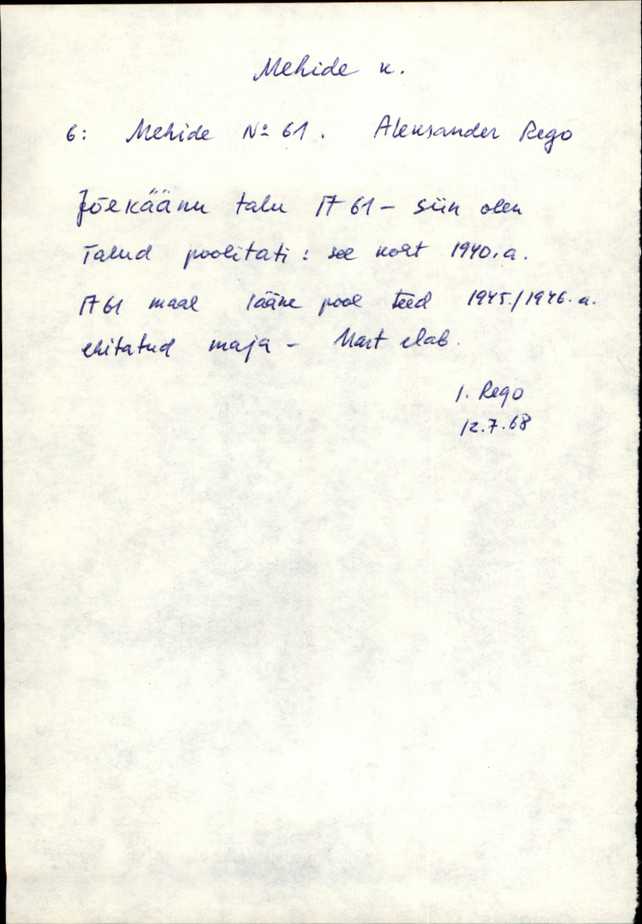 Mehide k.
6: Mehide № 61. Aleksander Rego
Jõekäänu talu A 61 – siin olen
Talud poolitati: see kort 1940.a.
A 61 maal lääne pool teed 1945./1946.a.
ehitatud maja – Mart elab.
I. Rego
12.7.68